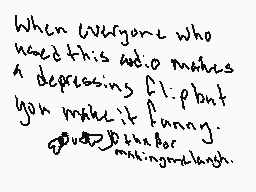 When everyone who
used this audio makes
a depressing flip but
you make it funny.
thx for
making me laugh.